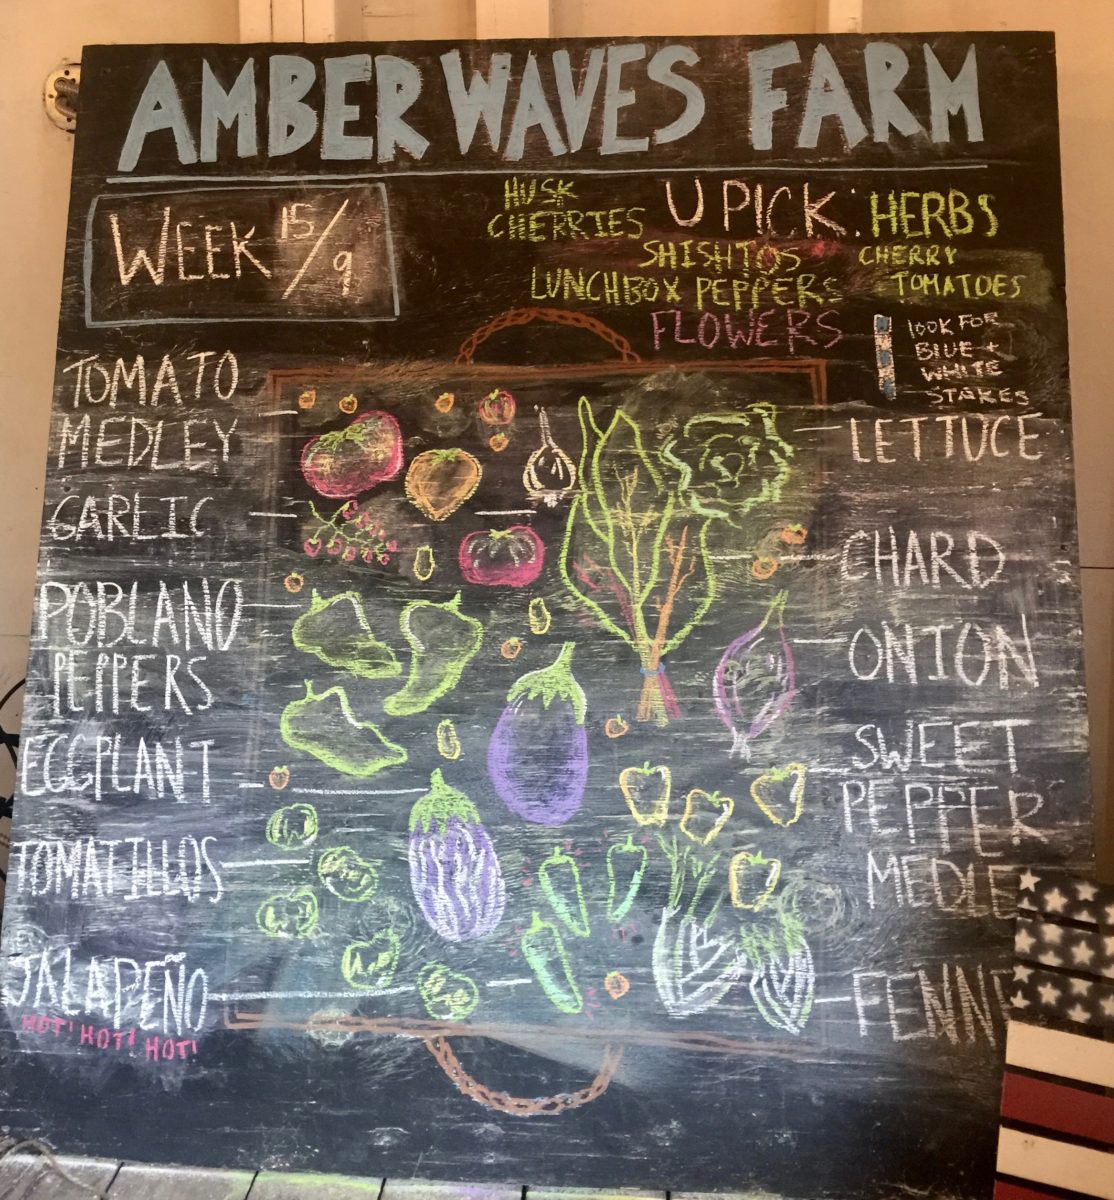 AMBER WAVES FARM
WEEK 15/9
U PICK:
HUSK
CHERRIES
HERBS
SHISHITOS
CHERRY
TOMATOES
LUNCHBOX PEPPERS
FLOWERS
LOOK FOR
BLUE +
WHITE
STAKES
TOMATO
MEDLEY
GARLIC
POBLANO
PEPPERS
EGGPLANT
TOMATILLOS
JALAPEÑO
HOT! HOT! HOT!
LETTUCE
CHARD
ONION
SWEET
PEPPER
MEDLE
FENNE